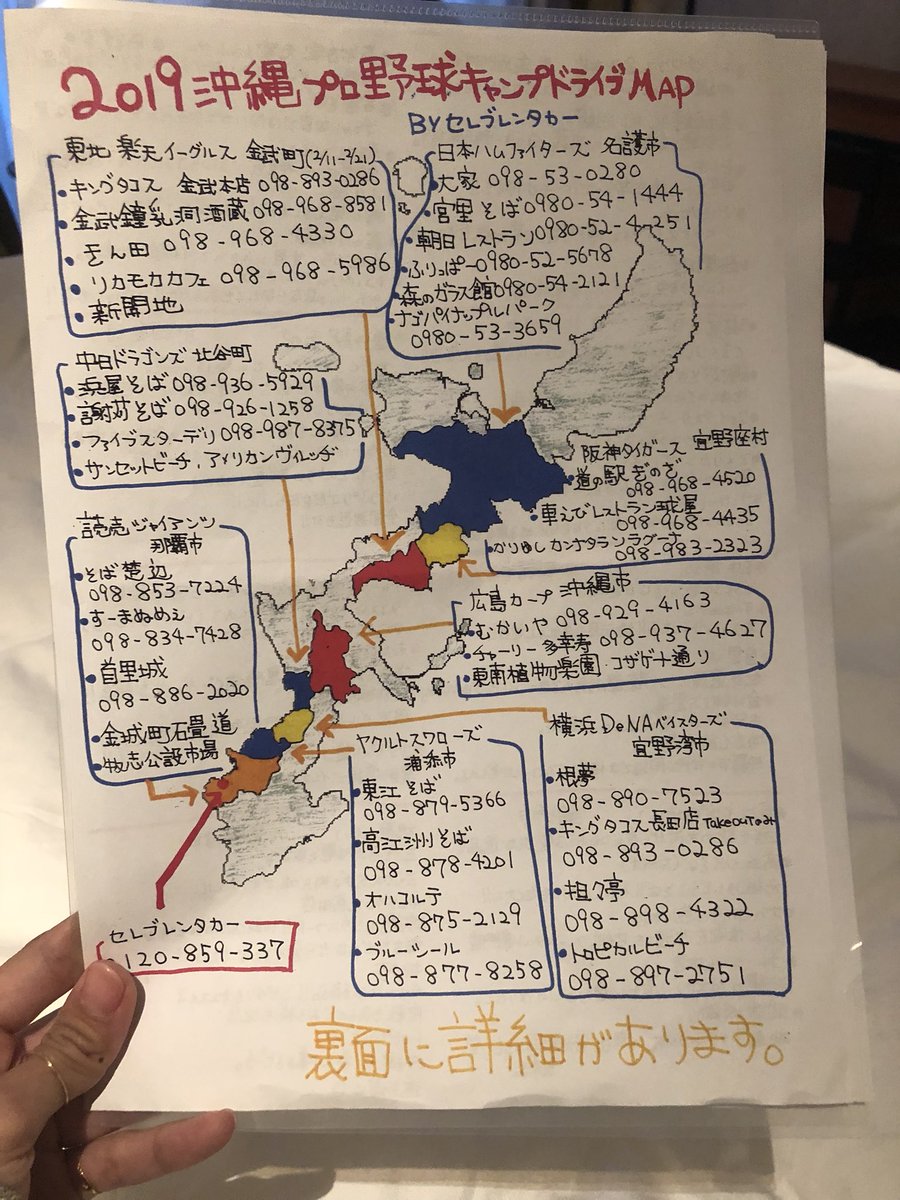 2019 沖縄プロ野球キャンプドライブMAP
BYセレブレンタカー
東北楽天イーグルス 金武町(2/11-2/21)
・キングタコス 金武本店098-893-0286
・金武鐘乳洞酒蔵098-968-8581
・ 098-968-4330
・リカモカカフェ 098-968-5986
・新開地
日本ハムファイターズ 名護市
・大家 098-53-0280
・宮里そば0980-54-1444
・朝日レストラン0980-52-4251
・ふりっぱー0980-52-5678
・森のガラス館0980-54-2121
・ナゴパイナップルパーク
0980-53-3659
中日ドラゴンズ 北谷町
・浜屋そば098-936-5929
・謝苅そば098-926-1258
・ファイブスターデリ098-987-8375
・サンセットビーチ、アメリカンヴィレッヂ
阪神タイガース 宜野座村
・道の駅ぎのざ
098-968-4520
・車えびレストラン球屋
098-968-4435
・かりゆしカンナタラソラグーナ
098-983-2323
読売ジャイアンツ
那覇市
・そば楚辺
098-853-7224
・すーまぬめぇ
098-834-7428
・首里城
098-886-2020
・金城町石畳道
・牧志公設市場
広島カープ 沖縄市
・むかいや 098-929-4163
・チャーリー多幸寿 098-937-4627
・東南植物楽園 コザゲート通り
ヤクルトスワローズ
浦添市
・東江そば
098-879-5366
・高江洲そば
098-878-4201
・オハコルテ
098-875-2129
・ブルーシール
098-877-8258
横浜DeNAベイスターズ
宜野湾市
・根夢
098-890-7523
・キングタコス長田店Takeoutのみ
098-893-0286
・担々亭
098-898-4322
・トロピカルビーチ
098-897-2751
セレブレンタカー
120-859-337
裏面に詳細があります。